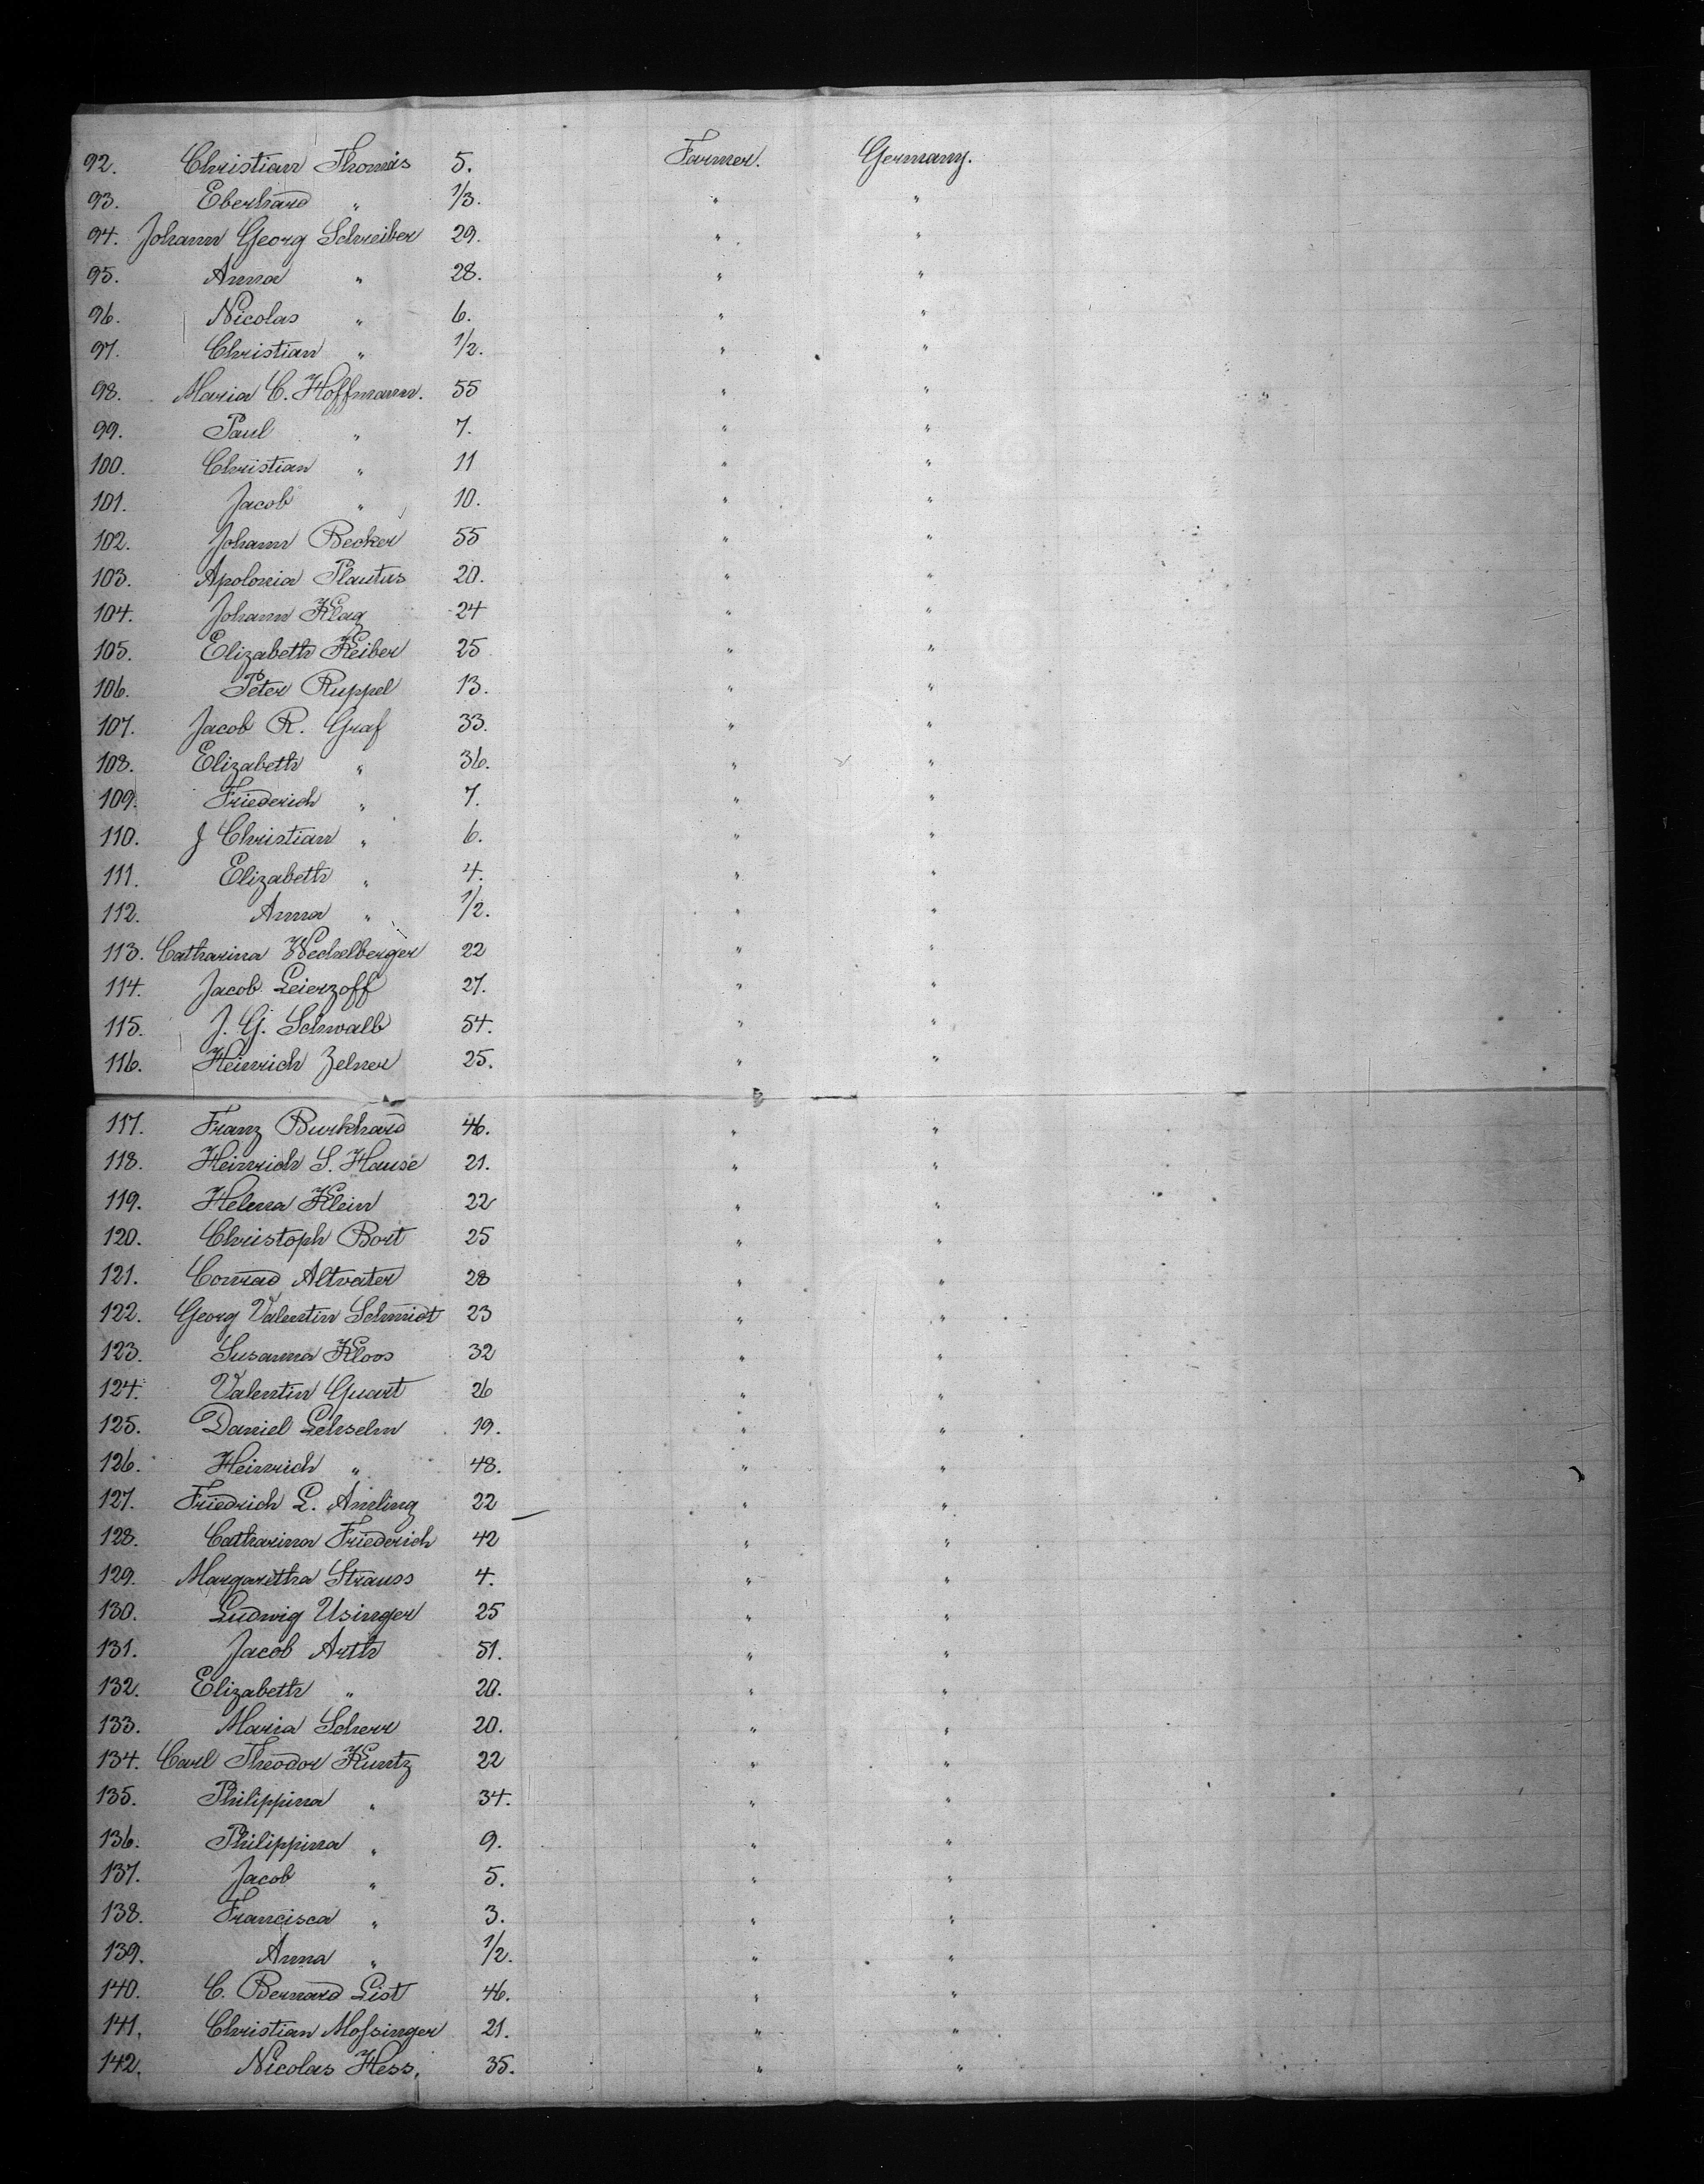 92. Christian Thomas 5. Farmer. Germany.
93. Eberhard " 1/3. " "
94. Johann Georg Schreiber 29. " "
95. Anna " 28. " "
96. Nicolas " 6. " "
97. Christian " 1/2. " "
98. Maria C. Hoffmann. 55 " "
99. Paul " 7. " "
100. Christian " 11 " "
101. Jacob " 10. " "
102. Johann Becker 55 " "
103. Apolonia Plautus 20. " "
104. Johann Klag 24 " "
105. Elizabeth Keiber 25 " "
106. Peter Ruppel 13. " "
107. Jacob R. Graf 33. " "
108. Elizabeth " 36. " "
109. Friederich " 7. " "
110. J Christian " 6. " "
111. Elizabeth " 4. " "
112. Anna " 1/2. " "
113. Catharina Wechelberger 22 " "
114. Jacob Leierzoff 27. " "
115. J. G. Schwalb 54. " "
116. Heinrich Zelner 25. " "
117. Franz Burkhard 46. " "
118. Heinrich S. Hause 21. " "
119. Helena Klein 22 " "
120. Christoph Bort 25 " "
121. Conrad Altvater 28 " "
122. Georg Valentin Schmidt 23 " "
123. Susanna Kloos 32 " "
124. Valentin Quart 26 " "
125. Daniel 19. " "
126. Heinrich " 48. " "
127. Friedrich L. Amling 22 " "
128. Catharina Friederich 42 " "
129. Margaretha Strauss 4. " "
130. Ludwig Usinger 25 " "
131. Jacob Arth 51. " "
132. Elizabeth " 20. " "
133. Maria Scherr 20. " "
134. Carl Theodor Kuntz 22 " "
135. Philippina " 34. " "
136. Philippina " 9. " "
137. Jacob " 5. " "
138. Francisca " 3. " "
139. Anna " 1/2. " "
140. C. Bernard List 46. " "
141. Christian Mossinger 21. " "
142. Nicolas Hess. 35. " "